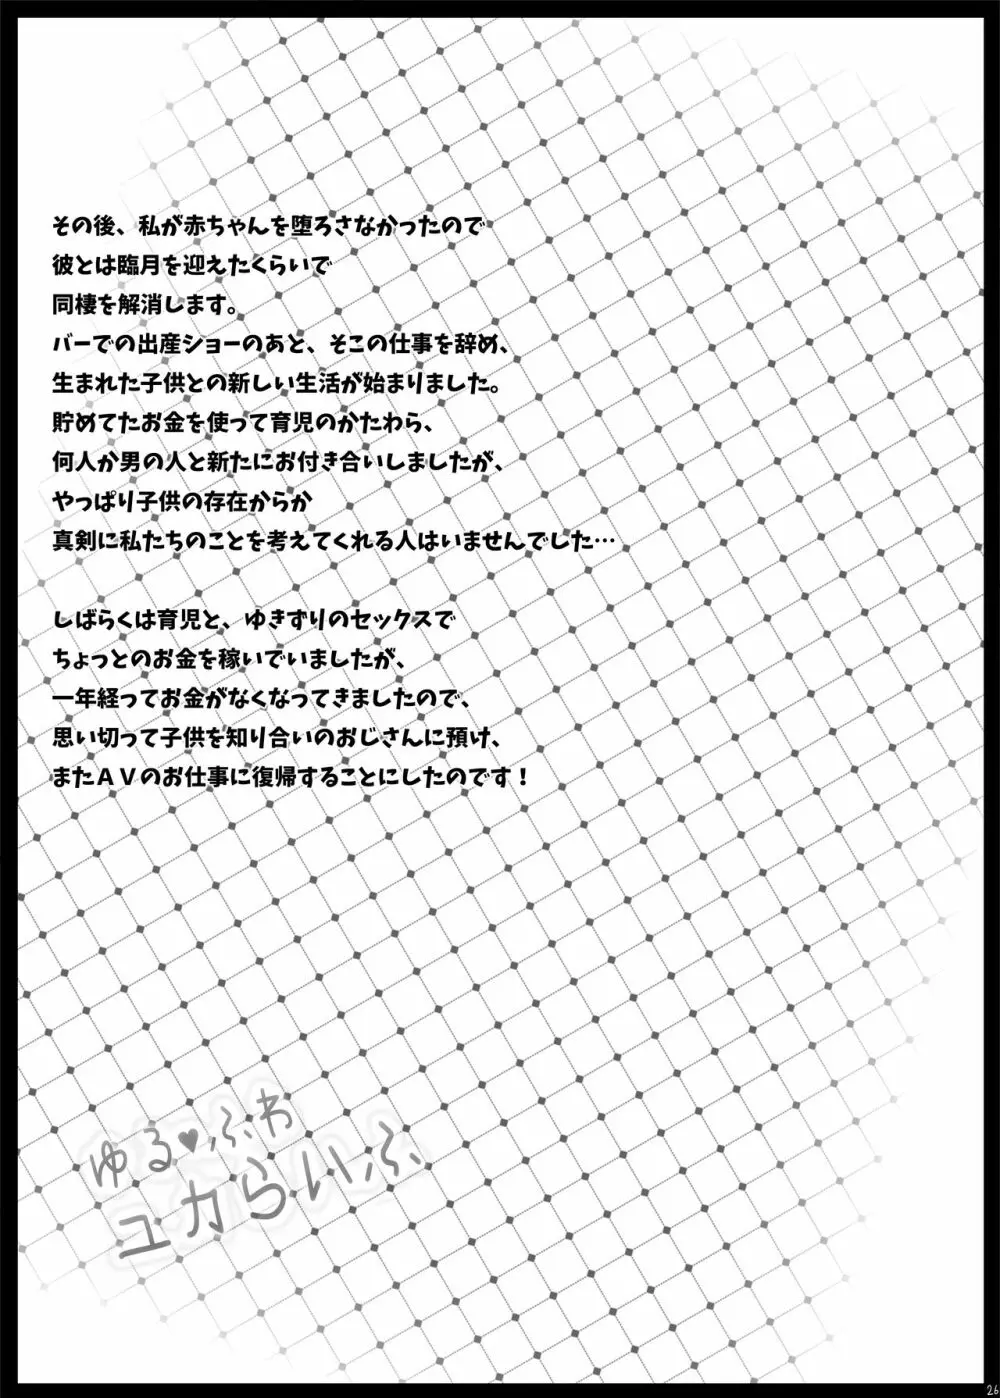 その後、私が赤ちゃんを堕ろさなかったので
彼とは臨月を迎えたくらいで
同棲を解消します。
バーでの出産ショーのあと、そこの仕事を辞め、
生まれた子供との新しい生活が始まりました。
貯めてたお金を使って育児のかたわら、
何人か男の人と新たにお付き合いしましたが、
やっぱり子供の存在からか
真剣に私たちのことを考えてくれる人はいませんでした…
しばらくは育児と、ゆきずりのセックスで
ちょっとのお金を稼いでいましたが、
一年経ってお金がなくなってきましたので、
思い切って子供を知り合いのおじさんに預け、
またＡＶのお仕事に復帰することにしたのです！
ゆる♥ふわ
ユカらいふ
26